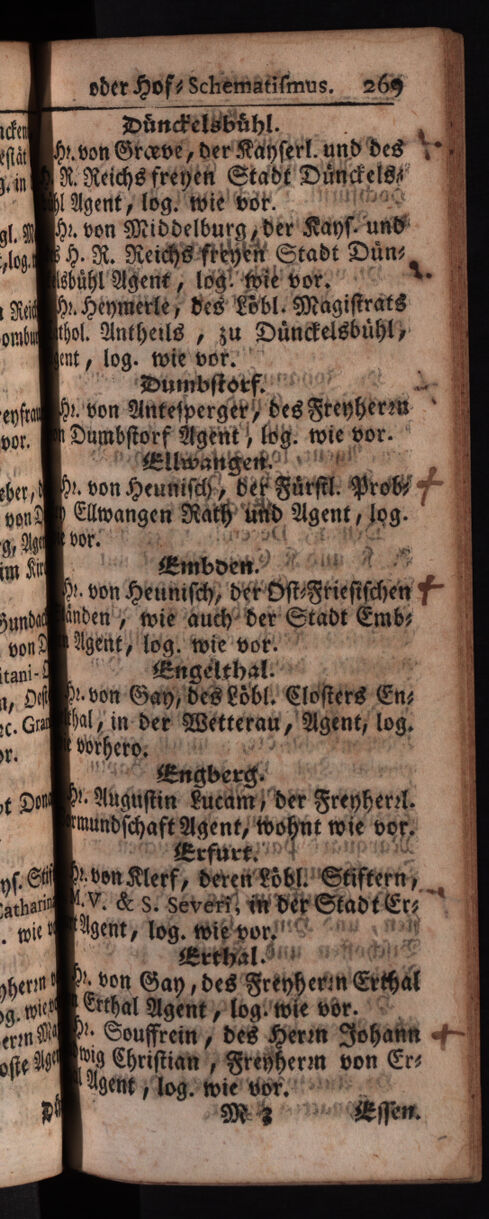 oder Hof-Schematismus. 269
Dünckelsbühl.
Hr. von Græve, der Kayserl. und des
R. Reichs freyen Stadt Dünckels-
Agent, log. wie vor.
Hr. von Middelburg, der Kays. und
H. R. Reichs freyen Stadt Dün-
elsbühl Agent, log. wie vor.
Hr. Heymerle, des Löbl. Magistrats
thol. Antheils, zu Dünckelsbühl,
gent, log. wie vor.
Dumbstorf.
Hr. von Antesperger, des Freyherrn
Dumbstorf Agent, log. wie vor.
Ellwangen.
Hr. von Heunisch, der Fürstl. Prob-
Ellwangen Rath und Agent, log.
vor.
Embden.
Hr. von Heunisch, der Ost-Friesischen
änden, wie auch der Stadt Emb-
Agent, log. wie vor.
Engelthal.
Hr. von Gay, des Löbl. Closters En-
thal, in der Wetterau, Agent, log.
vorhero.
Engberg.
Hr. Augustin Lucam, der Freyherrl.
rmundschaft Agent, wohnt wie vor.
Erfurt.
Hr. von Klerf, deren Löbl. Stiftern,
V. & S. Severi, in der Stadt Er-
Agent, log. wie vor.
Erthal.
Hr. von Gay, des Freyherrn Erthal
Erthal Agent, log. wie vor.
Hr. Souffrein, des Herrn Johann
wig Christian, Freyherrn von Er-
Agent, log. wie vor.
M 3 Essen.